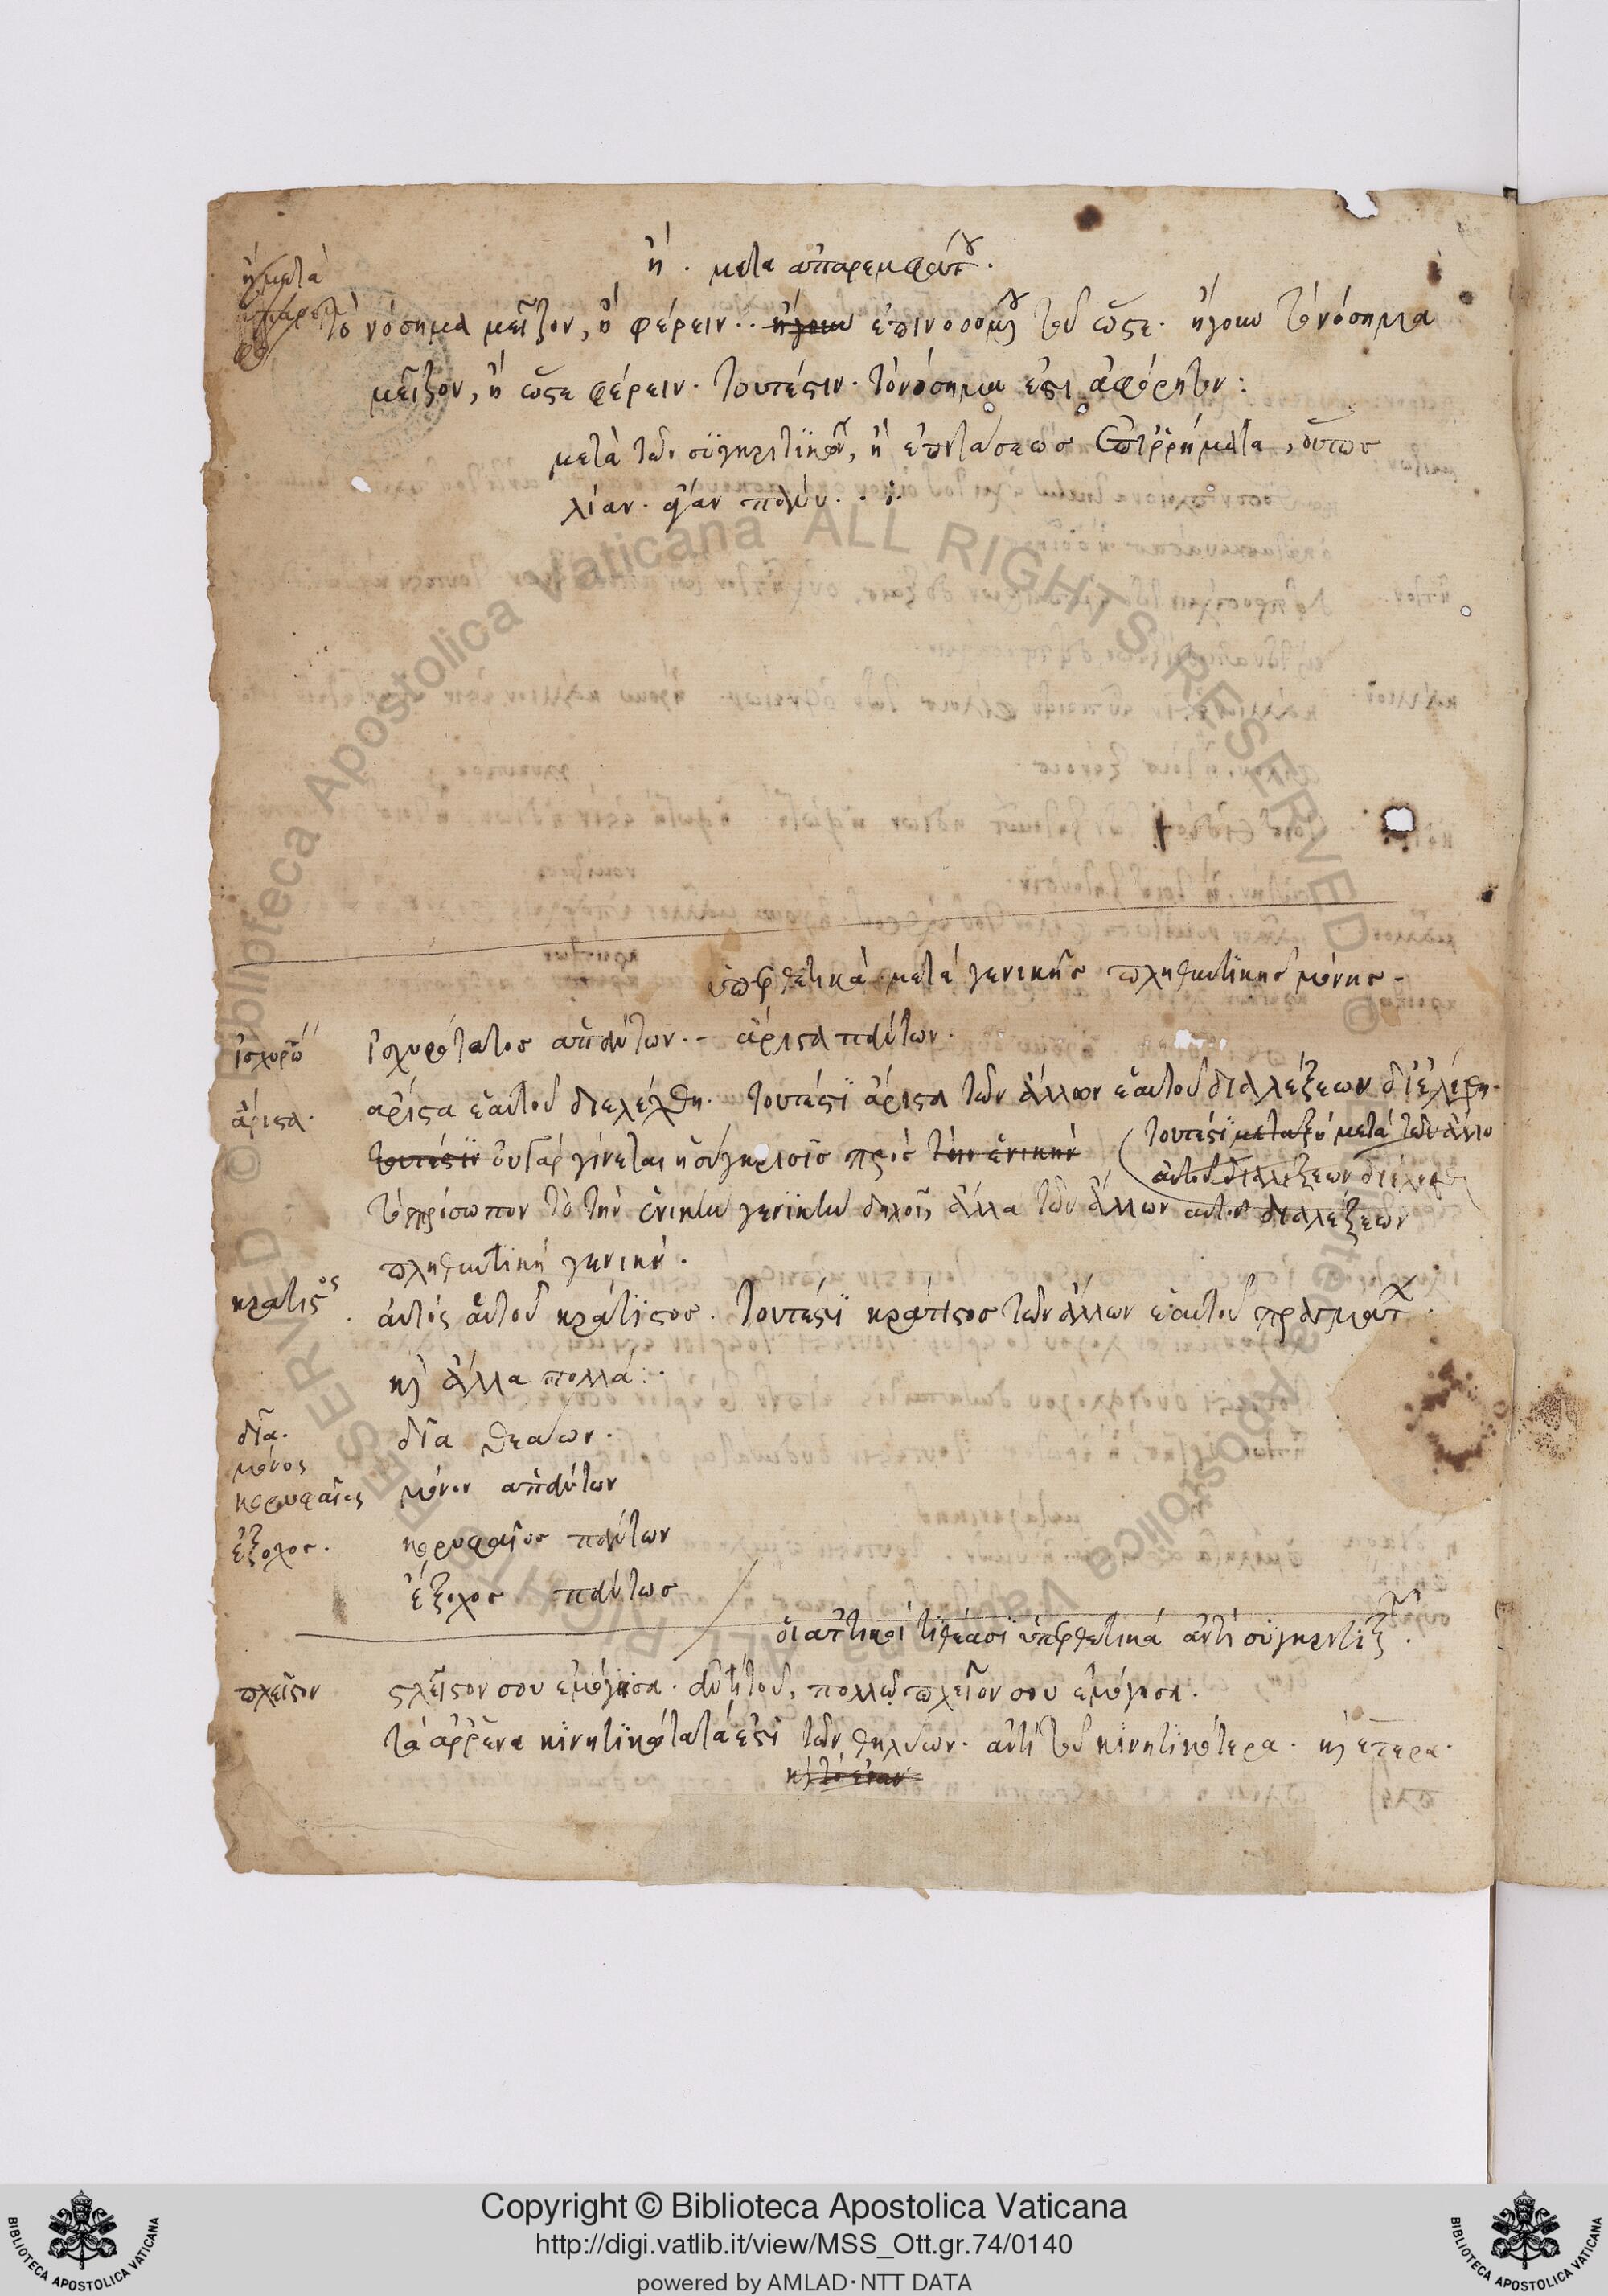 ἢ . μετα ἀπαρεμφάτου.
ἢ μετὰ
τὸ νόσημα μεῖζον, ἢ φέρειν .. ἤγουν ἐπινοουμένου τοῦ ὥστε . ἤγουν τὸ νόσημα
μεῖζον, ἢ ὥστε φέρειν . τουτέστιν . τὸ νόσημα ἐστι ἀφόρητον :
μετὰ τῶν συγκριτικῶν, ἢ ἐπιτάσεως ἐπιρρήματα, οὕτως
λίαν . ἄγαν πολύ .
ὑπερθετικὰ μετὰ γενικῆς πληθυντικῆς μόνης -
ἰσχυρό ἰσχυρότατος ἁπάντων . - ἄριστα πάντων .
ἄριστα . ἄριστα ἑαυτοῦ διελέχθη . τουτέστι ἄριστα τῶν ἄλλων ἑαυτοῦ διαλέξεων διελέχθη .
τουτέστιν οὐ γὰρ γίνεται ἡ σύγκρισις πρὸς τὴν ἑνικὴν
τουτέστι μεταξὺ μετὰ τῶν ἄλλω
αὐτοῦ διαλέξεων διελεχθ
τὸ πρόσωπον τὸ τὴν ἑνικὴν γενικὴν δηλοῖ, ἀλλα τῶν ἄλλων αὐτοῦ διαλέξεων
πληθυντικὴ γενική .
κρατιστος . αὐτὸς αὑτοῦ κράτιστος . τουτέστι κράτιστος τῶν ἄλλων ἑαυτοῦ πραγμάτων .
καὶ ἄλλα πολλά :.
δῖα . δῖα θεάων .
μόνος μόνον ἁπάντων
κορυφαῖος κορυφαῖος πάντων
ἔξοχος . ἔξοχος πάντως
οἱ ἀττικοὶ τιθέασι ὑπερθετικὰ ἀντὶ συγκριτικῶν .
πλεῖστον πλεῖστον σου ἐμόγησα . ἀντὶ τοῦ, πολλῷ πλεῖον σου ἐμόγησα .
τὰ ἄρρενα κινητικώτατά ἐστι τῶν θηλέων . ἀντὶ τοῦ κινητικώτερα . καὶ ἕτερα .
Copyright © Biblioteca Apostolica Vaticana
http://digi.vatlib.it/view/MSS_Ott.gr.74/0140
powered by AMLAD·NTT DATA
BIBLIOTECA APOSTOLICA VATICANA
BIBLIOTECA APOSTOLICA VATICANA
© Biblioteca Apostolica Vaticana ALL RIGHTS RESERVED
© Biblioteca Apostolica Vaticana ALL RIGHTS RESERVED